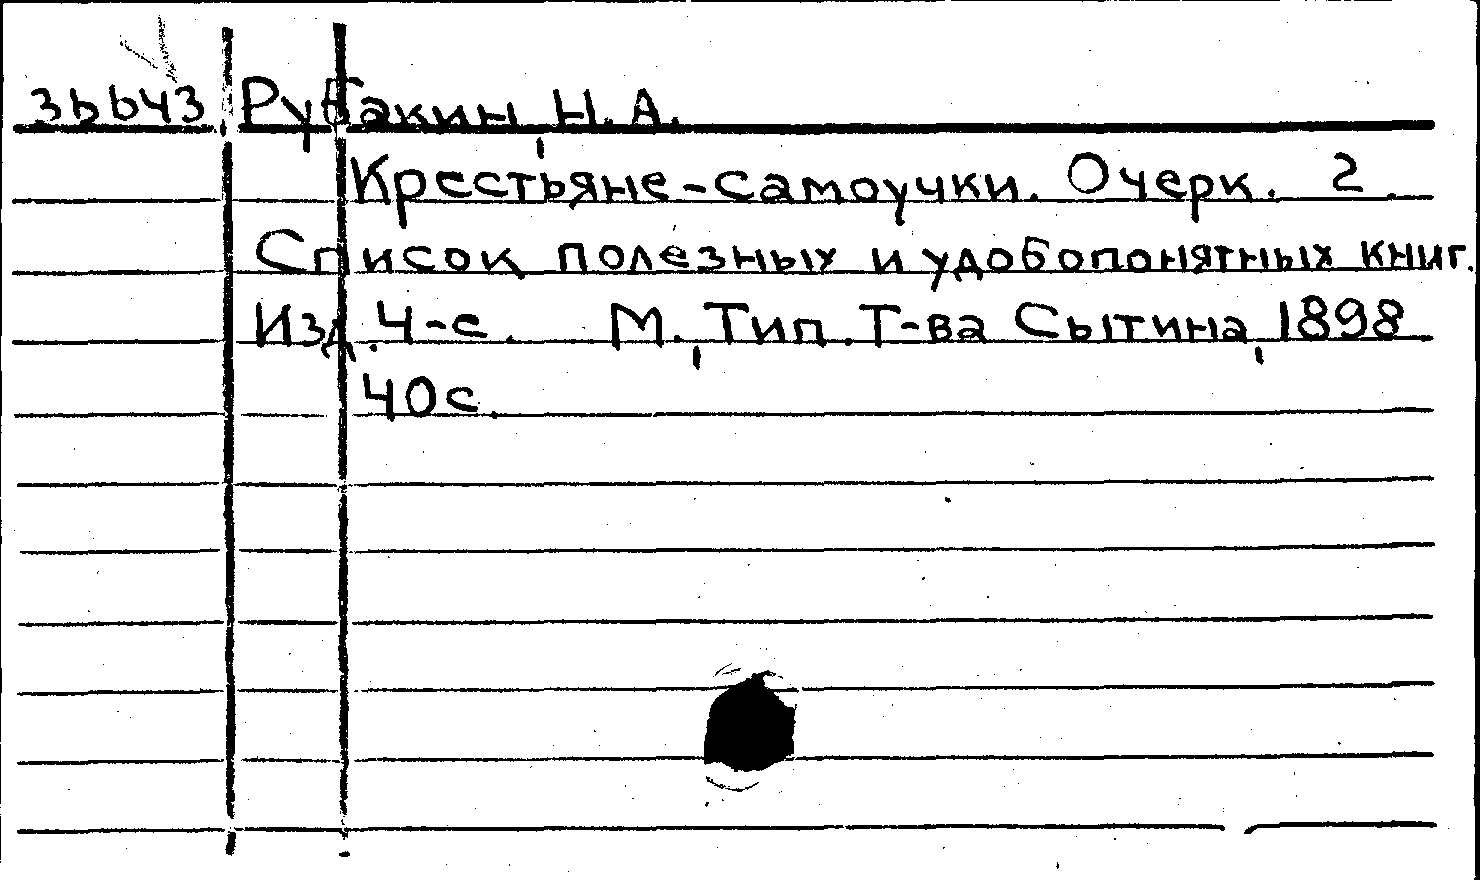 36643 Рубакин, Н. А.
Крестьяне-самоучки. Очерк. 2.
Список полезных и удобопонятных книг.
Изд. 4-е. М., Тип. Т-ва Сытина, 1898
40с.